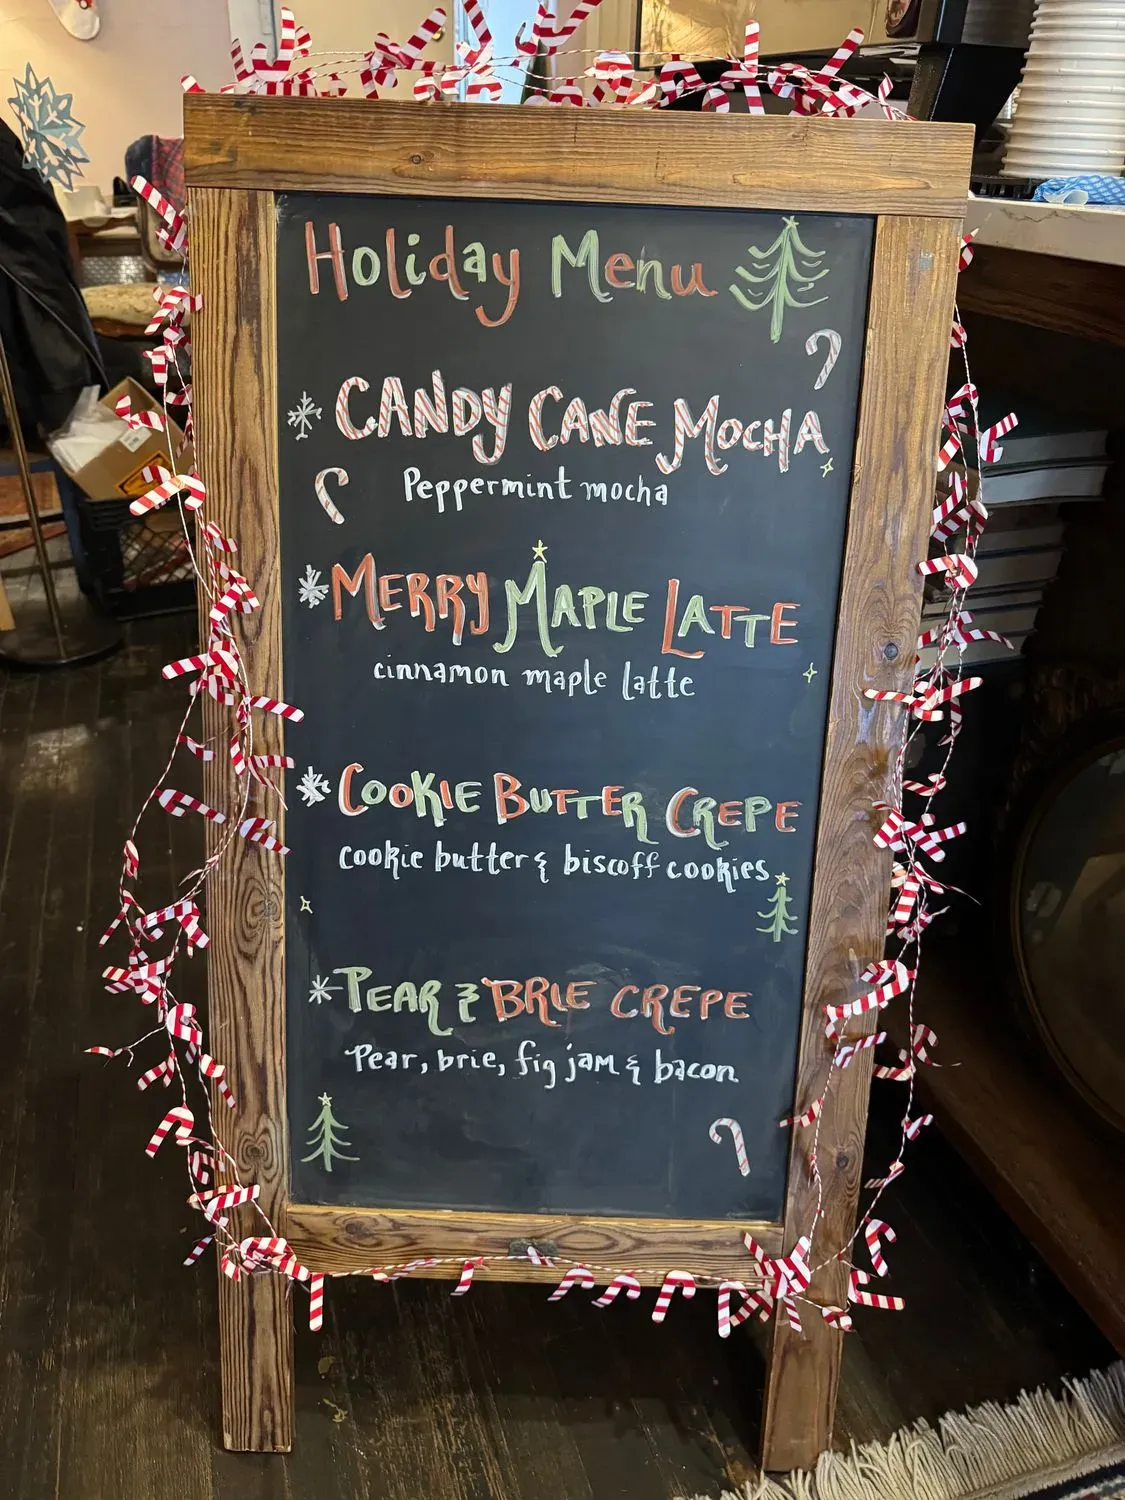 Holiday Menu
CANDY CANE MOCHA
Peppermint mocha
MERRY MAPLE LATTE
cinnamon maple latte
COOKIE BUTTER CREPE
cookie butter & biscoff cookies
PEAR & BRIE CREPE
Pear, brie, fig jam & bacon